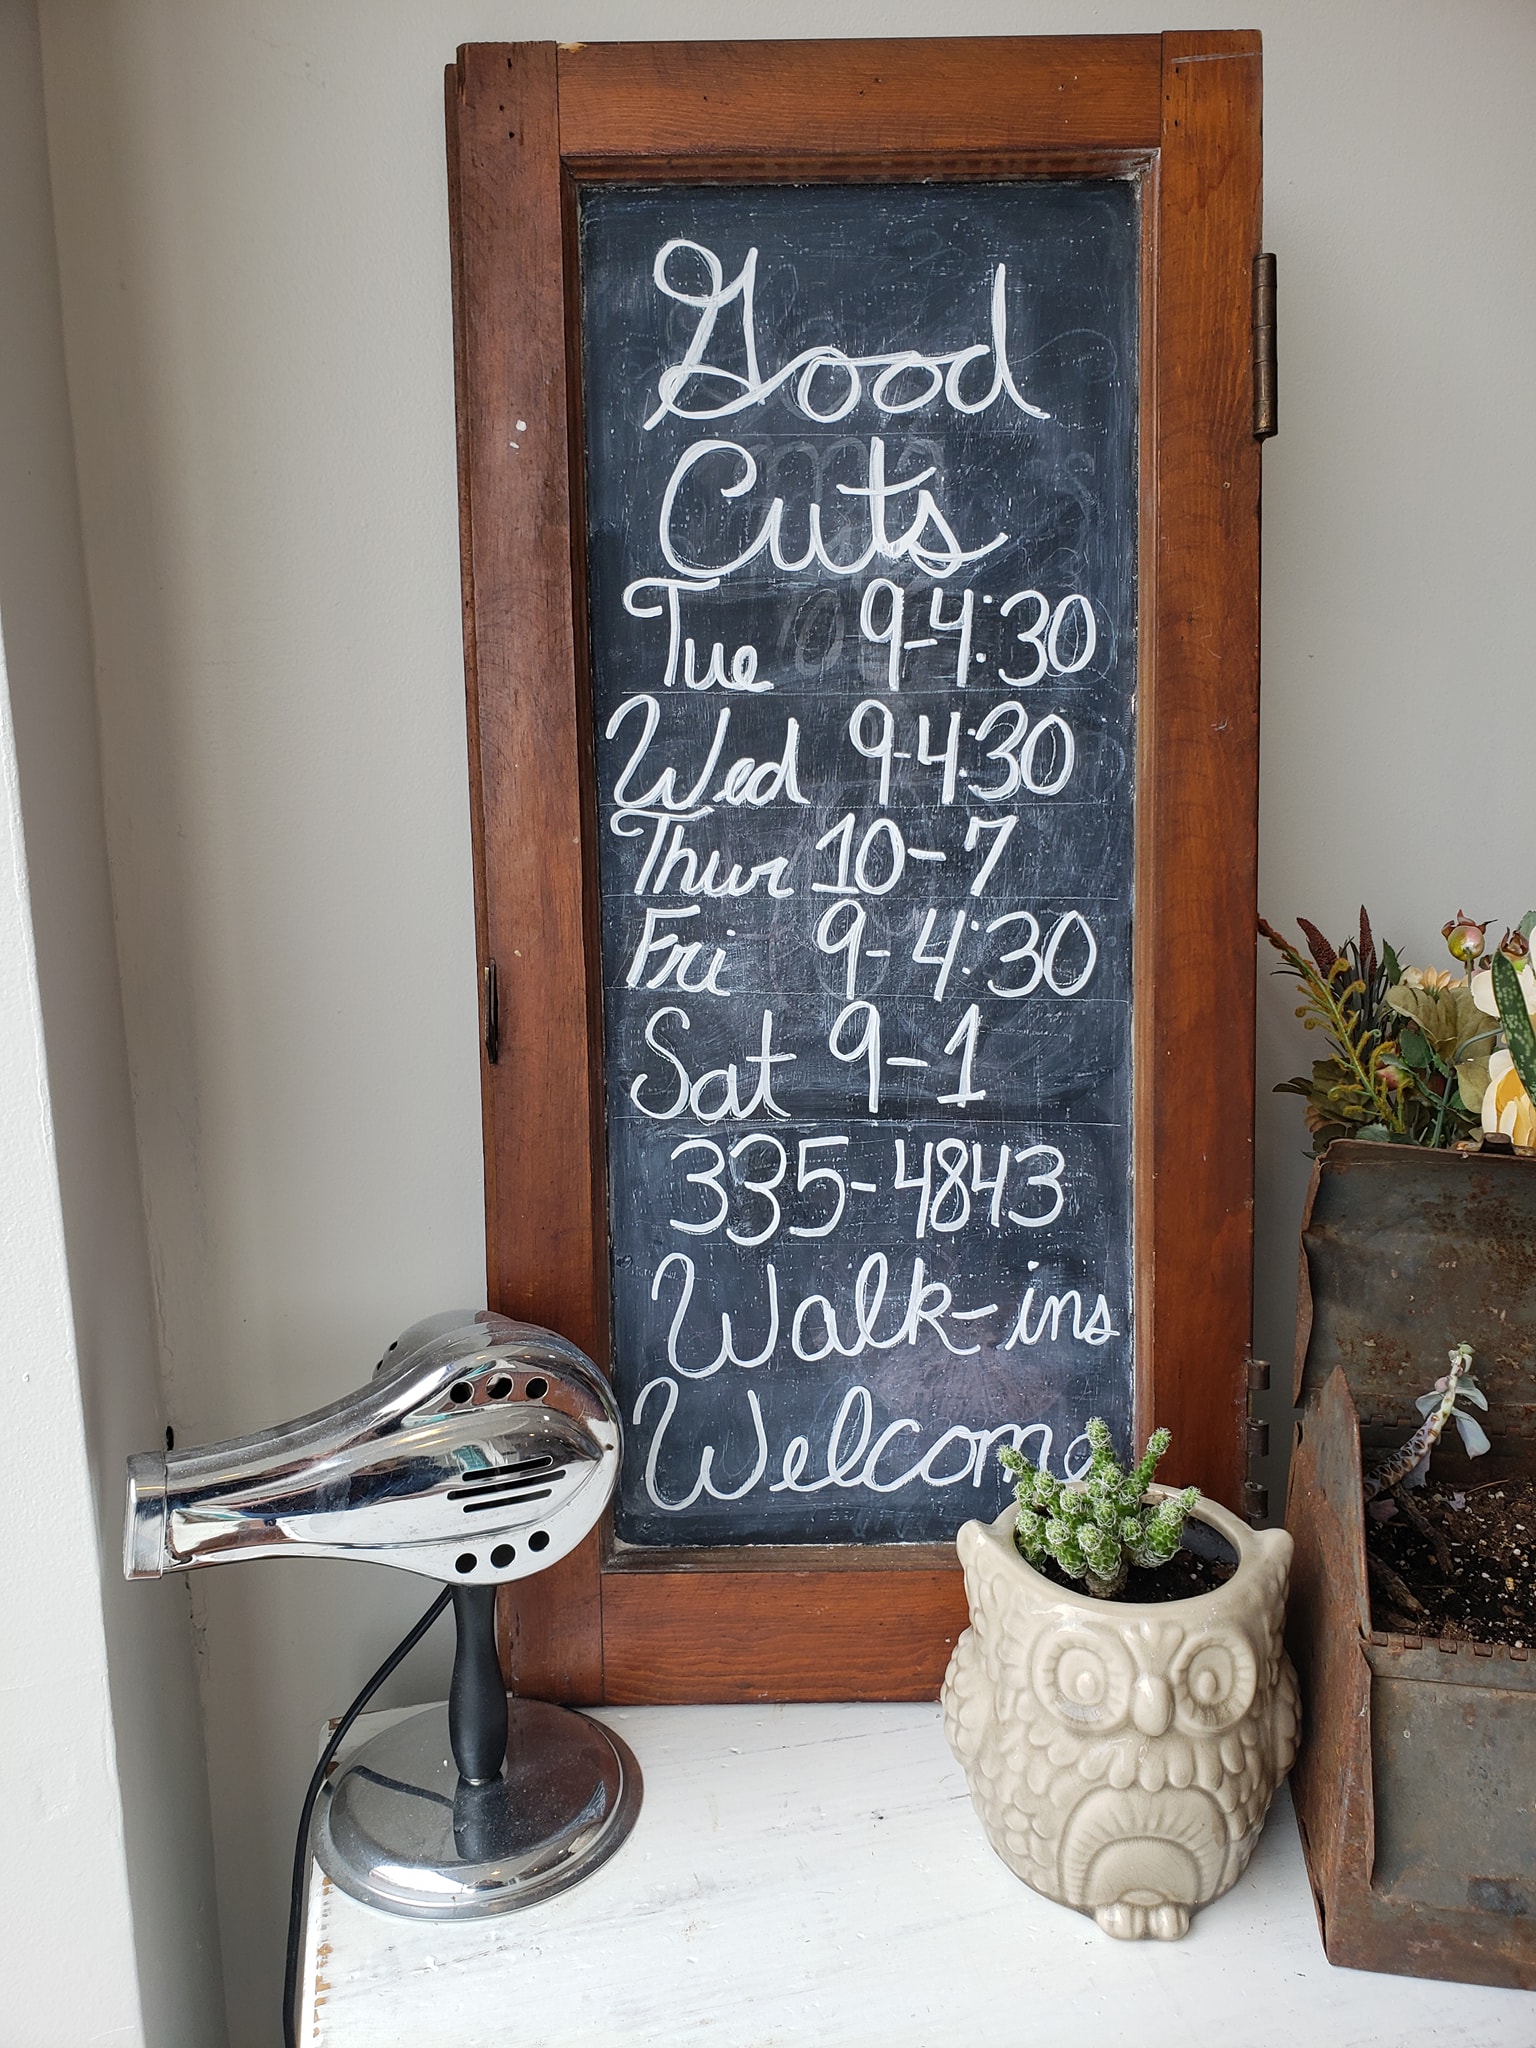 Good
Cuts
Tue 9-4:30
Wed 9-4:30
Thur 10-7
Fri 9-4:30
Sat 9-1
335-4843
Walk-ins
Welcome